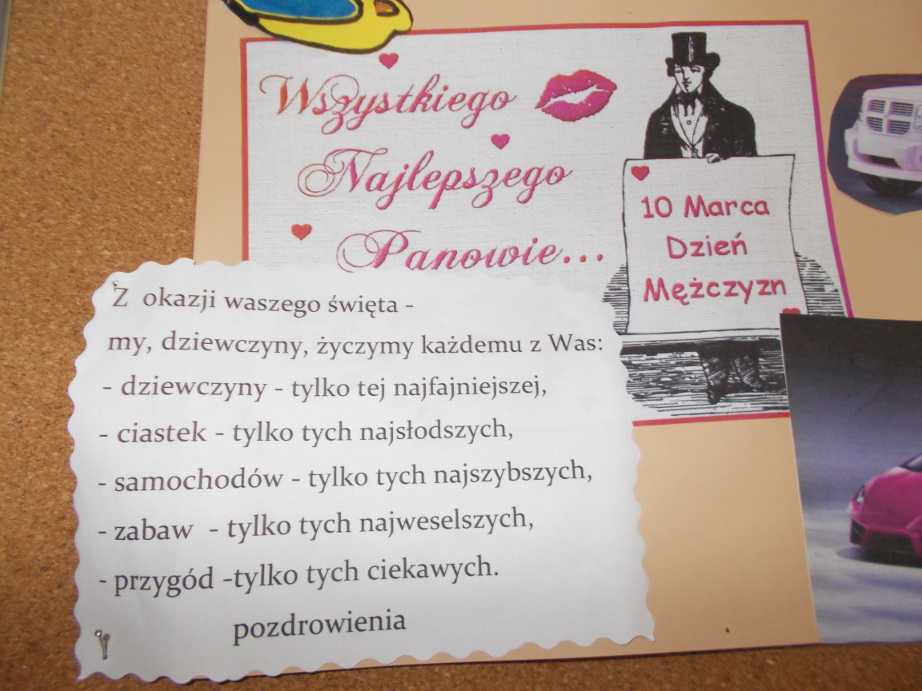 Wszystkiego
Najlepszego
Panowie...
10 Marca
Dzień
Mężczyzn
Z okazji waszego święta -
my, dziewczyny, życzymy każdemu z Was:
- dziewczyny - tylko tej najfajniejszej,
- ciastek - tylko tych najsłodszych,
- samochodów - tylko tych najszybszych,
- zabaw - tylko tych najweselszych,
- przygód -tylko tych ciekawych.
pozdrowienia